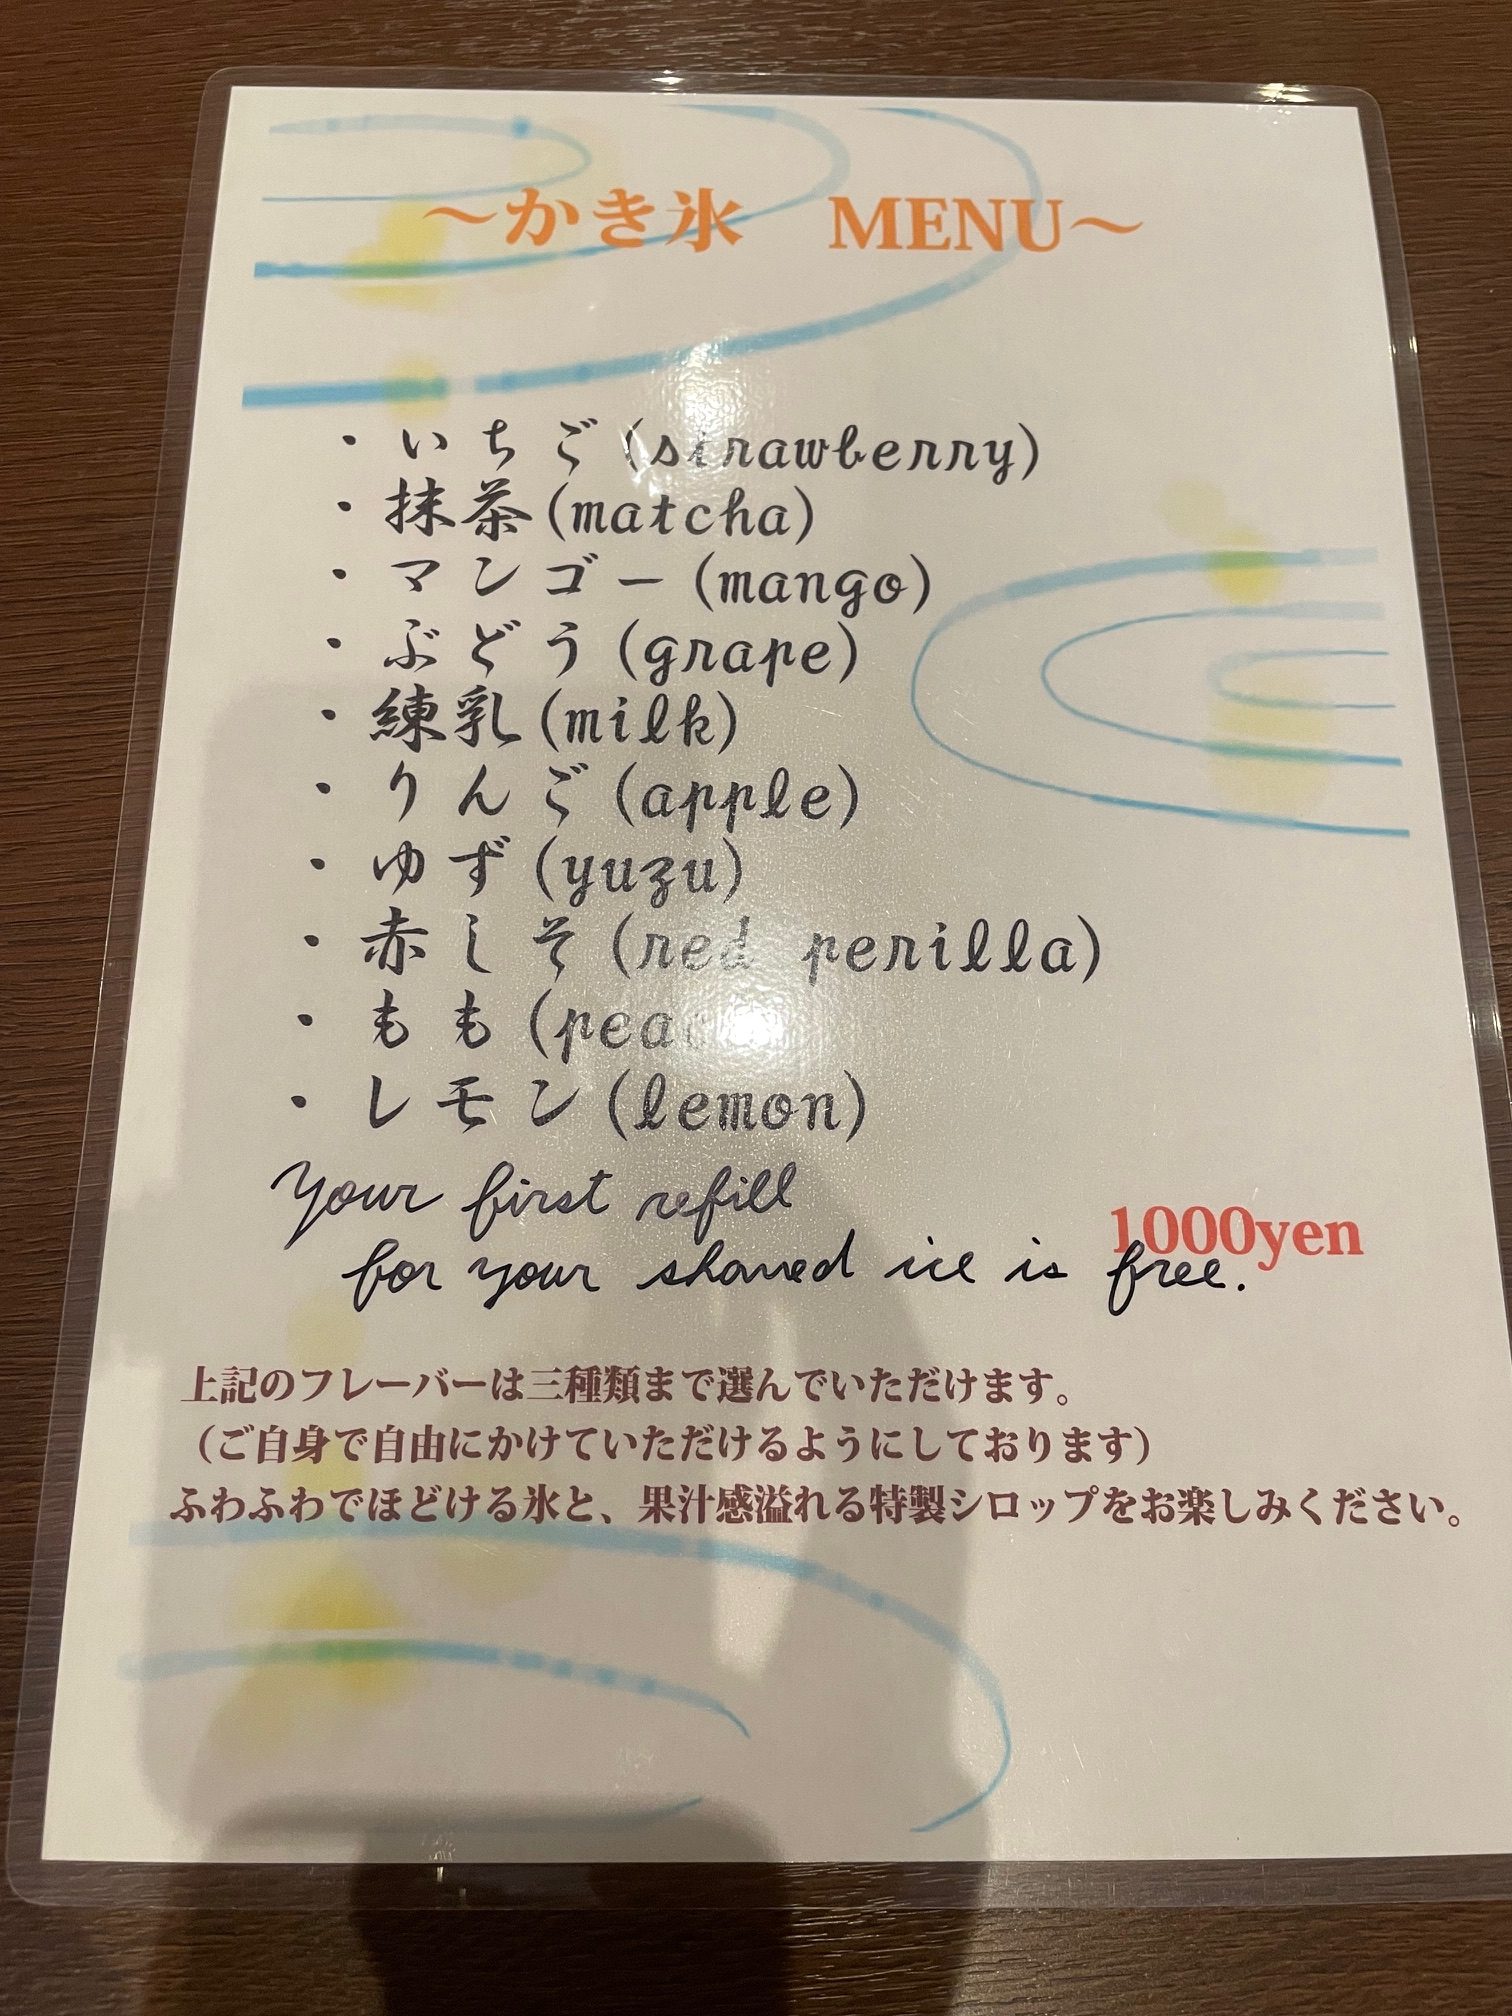 ～かき氷　MENU～
・いちご(strawberry)
・抹茶(matcha)
・マンゴー(mango)
・ぶどう(grape)
・練乳(milk)
・りんご(apple)
・ゆず(yuzu)
・赤しそ(red perilla)
・もも(peac
・レモン(lemon)
Your first refill
1000yen
for your shaved ice is free.
上記のフレーバーは三種類まで選んでいただけます。
（ご自身で自由にかけていただけるようにしております）
ふわふわでほどける氷と、果汁感溢れる特製シロップをお楽しみください。